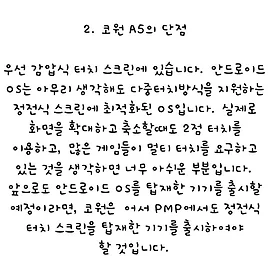 2. 코원 A5의 단점
우선 감압식 터치 스크린에 있습니다. 안드로이드
OS는 아무리 생각해도 다중터치방식을 지원하는
정전식 스크린에 최적화된 OS입니다. 실제로
화면을 확대하고 축소할때도 2점 터치를
이용하고, 많은 게임들이 멀티 터치를 요구하고
있는 것을 생각하면 너무 아쉬운 부분입니다.
앞으로도 안드로이드 OS를 탑재한 기기를 출시할
예정이라면, 코원은 어서 PMP에서도 정전식
터치 스크린을 탑재한 기기를 출시하여야
할 것입니다.